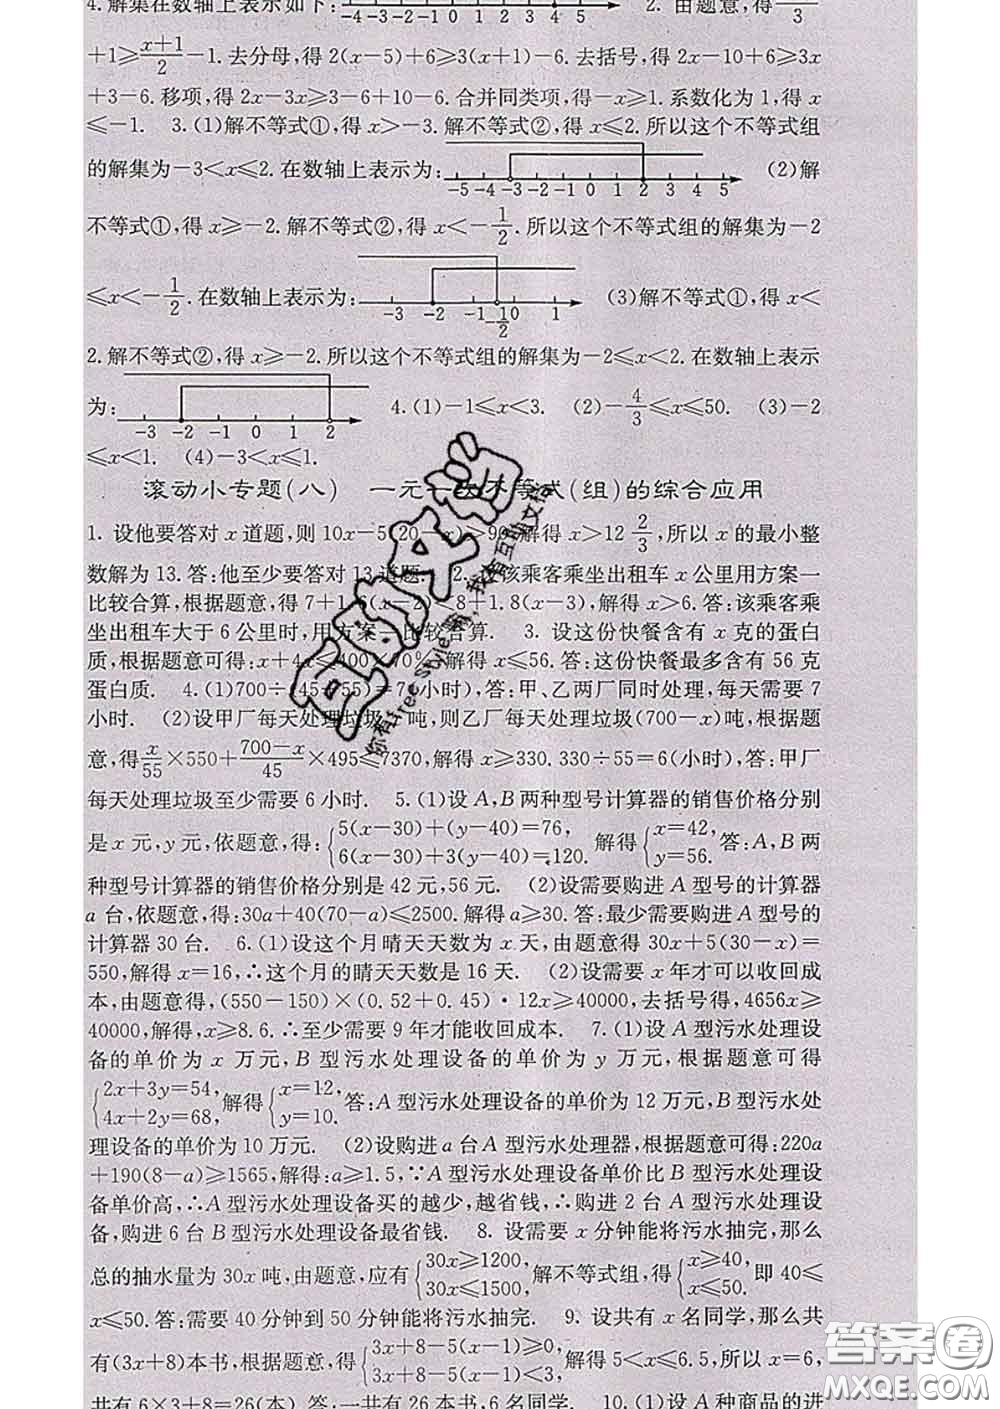 4.解集在数轴上表示如下: -4-3-2-1 0 1 2 3 4 5 2. 由题意,得 3
+1≥(x+1)/2-1.去分母,得2(x-5)+6≥3(x+1)-6.去括号,得2x-10+6≥3x
+3-6.移项,得2x-3x≥3-6+10-6.合并同类项,得-x≥1.系数化为1,得x
≤-1. 3.(1)解不等式①,得x>-3.解不等式②,得x≤2.所以这个不等式组
的解集为-3<x≤2.在数轴上表示为: -5 -4 -3 -2 -1 0 1 2 3 4 5 (2)解
不等式①,得x≥-2.解不等式②,得x<-1/2.所以这个不等式组的解集为-2
≤x<-1/2.在数轴上表示为: -3 -2 -1 -1/2 0 1 (3)解不等式①,得x<
2.解不等式②,得x≥-2.所以这个不等式组的解集为-2≤x<2.在数轴上表示
为: -3 -2 -1 0 1 2 4.(1)-1≤x<3. (2)-4/3≤x≤50. (3)-2
≤x<1. (4)-3<x≤1.
滚动小专题(八) 一元一次不等式(组)的综合应用
1. 设他要答对x道题,则10x-5(20-x)>90,解得x>12 2/3,所以x的最小整
数解为13.答:他至少要答对13道题. 2. 设该乘客乘坐出租车x公里用方案一
比较合算,根据题意,得7+1.6(x-2)<8+1.8(x-3),解得x>6.答:该乘客乘
坐出租车大于6公里时,用方案一比较合算. 3. 设这份快餐含有x克的蛋白
质,根据题意可得:x+4x≤400×70%,解得x≤56.答:这份快餐最多含有56克
蛋白质. 4.(1)700÷(45+55)=7(小时),答:甲、乙两厂同时处理,每天需要7
小时. (2)设甲厂每天处理垃圾x吨,则乙厂每天处理垃圾(700-x)吨,根据题
意,得x/55×550+(700-x)/45×495≤7370,解得x≥330.330÷55=6(小时).答:甲厂
每天处理垃圾至少需要6小时. 5.(1)设A,B两种型号计算器的销售价格分别
是x元,y元,依题意,得:{5(x-30)+(y-40)=76, 6(x-30)+3(y-40)=120. 解得{x=42, y=56. 答:A,B两
种型号计算器的销售价格分别是42元,56元. (2)设需要购进A型号的计算器
a台,依题意,得:30a+40(70-a)≤2500.解得a≥30.答:最少需要购进A型号的
计算器30台. 6.(1)设这个月晴天天数为x天,由题意得30x+5(30-x)=
550,解得x=16,∴这个月的晴天天数是16天. (2)设需要x年才可以收回成
本,由题意得,(550-150)×(0.52+0.45)·12x≥40000,去括号得,4656x≥
40000,解得,x≥8.6.∴至少需要9年才能收回成本. 7.(1)设A型污水处理设
备的单价为x万元,B型污水处理设备的单价为y万元,根据题意可得
{2x+3y=54, 4x+2y=68,解得{x=12, y=10. 答:A型污水处理设备的单价为12万元,B型污水处
理设备的单价为10万元. (2)设购进a台A型污水处理器,根据题意可得:220a
+190(8-a)≥1565,解得:a≥1.5,∵A型污水处理设备单价比B型污水处理设
备单价高,∴A型污水处理设备买的越少,越省钱,∴购进2台A型污水处理设
备,购进6台B型污水处理设备最省钱. 8. 设需要x分钟能将污水抽完,那么
总的抽水量为30x吨,由题意,应有{30x≥1200, 30x≤1500, 解不等式组,得{x≥40, x≤50. 即40≤
x≤50.答:需要40分钟到50分钟能将污水抽完. 9. 设共有x名同学,那么共
有(3x+8)本书,根据题意,得{3x+8-5(x-1)≥0, 3x+8-5(x-1)<3, 解得5<x≤6.5,所以x=6,
共有6×3+8=26(本).答:一共有26本书,6名同学. 10.(1)设A种商品的进
答案圈
MXQE.COM